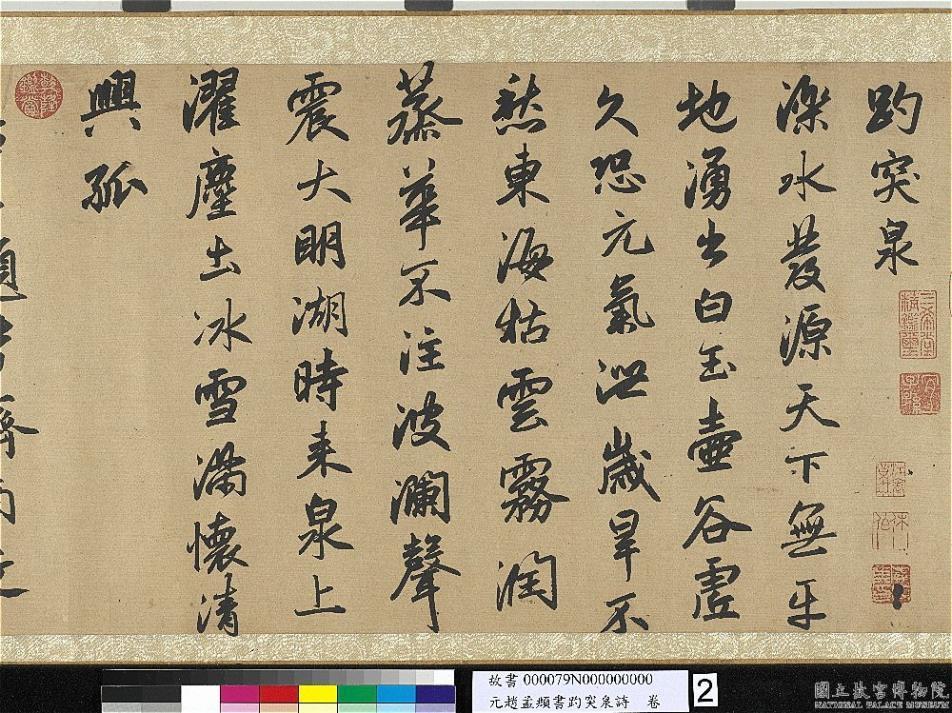 趵突泉
濼水發源天下無平
地湧出白玉壺谷虛
久恐元氣泄歲旱不
愁東海枯雲霧潤
蒸華不注波瀾聲
震大明湖時来泉上
濯塵土冰雪滿懷清
興孤
三希堂精鑑璽
宜子孫
乾隆鑑賞
故書 000079N000000000
元趙孟頫書趵突泉詩 卷
2
國立故宮博物院
NATIONAL PALACE MUSEUM